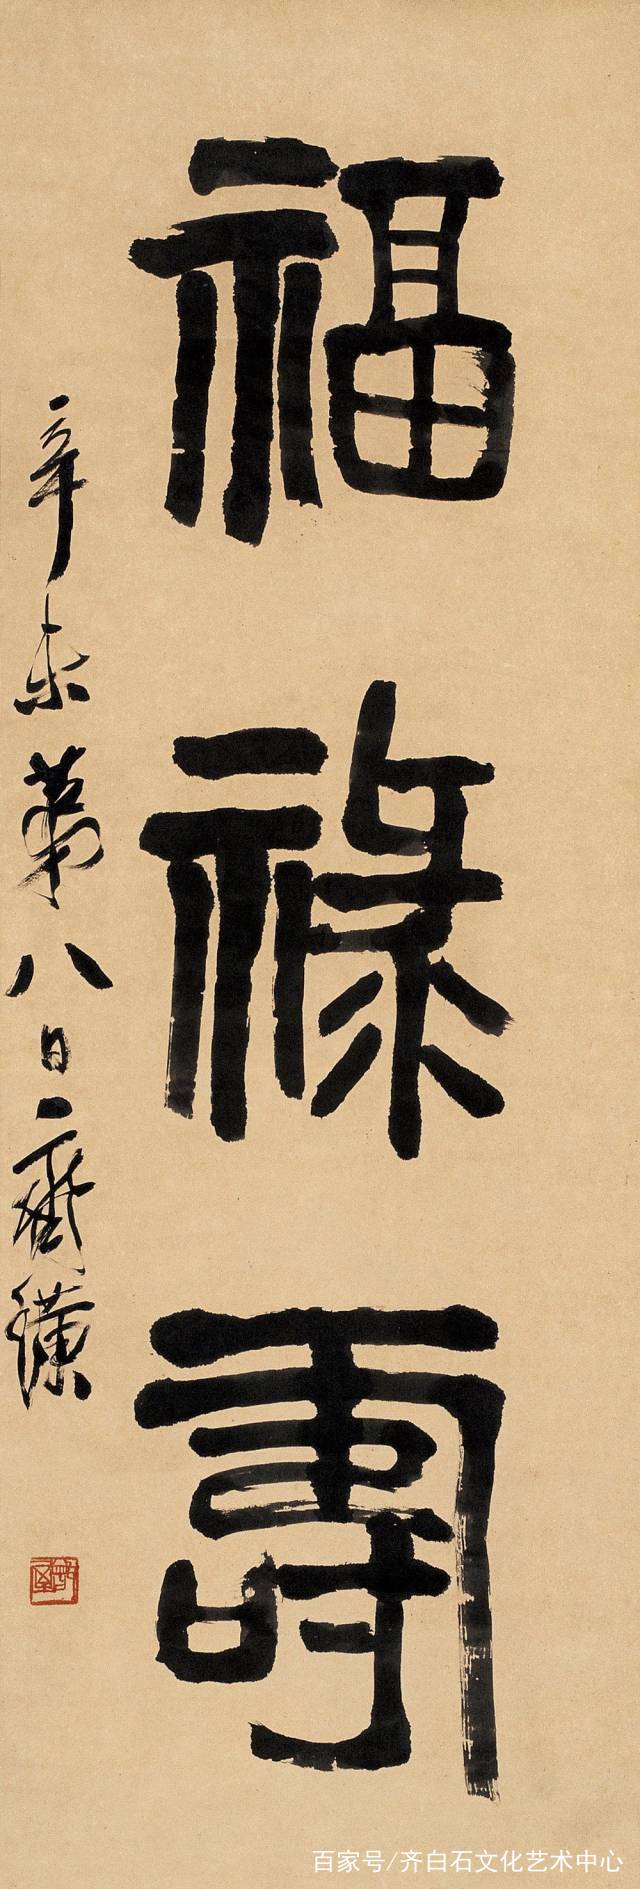 福祿壽
辛未第八日齊璜
百家号/齐白石文化艺术中心